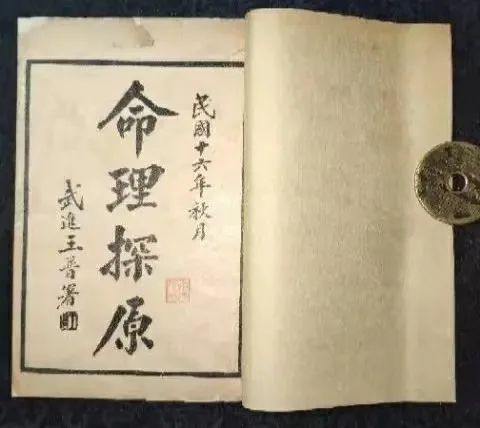 民國十六年秋月
命理探原
武進王普署